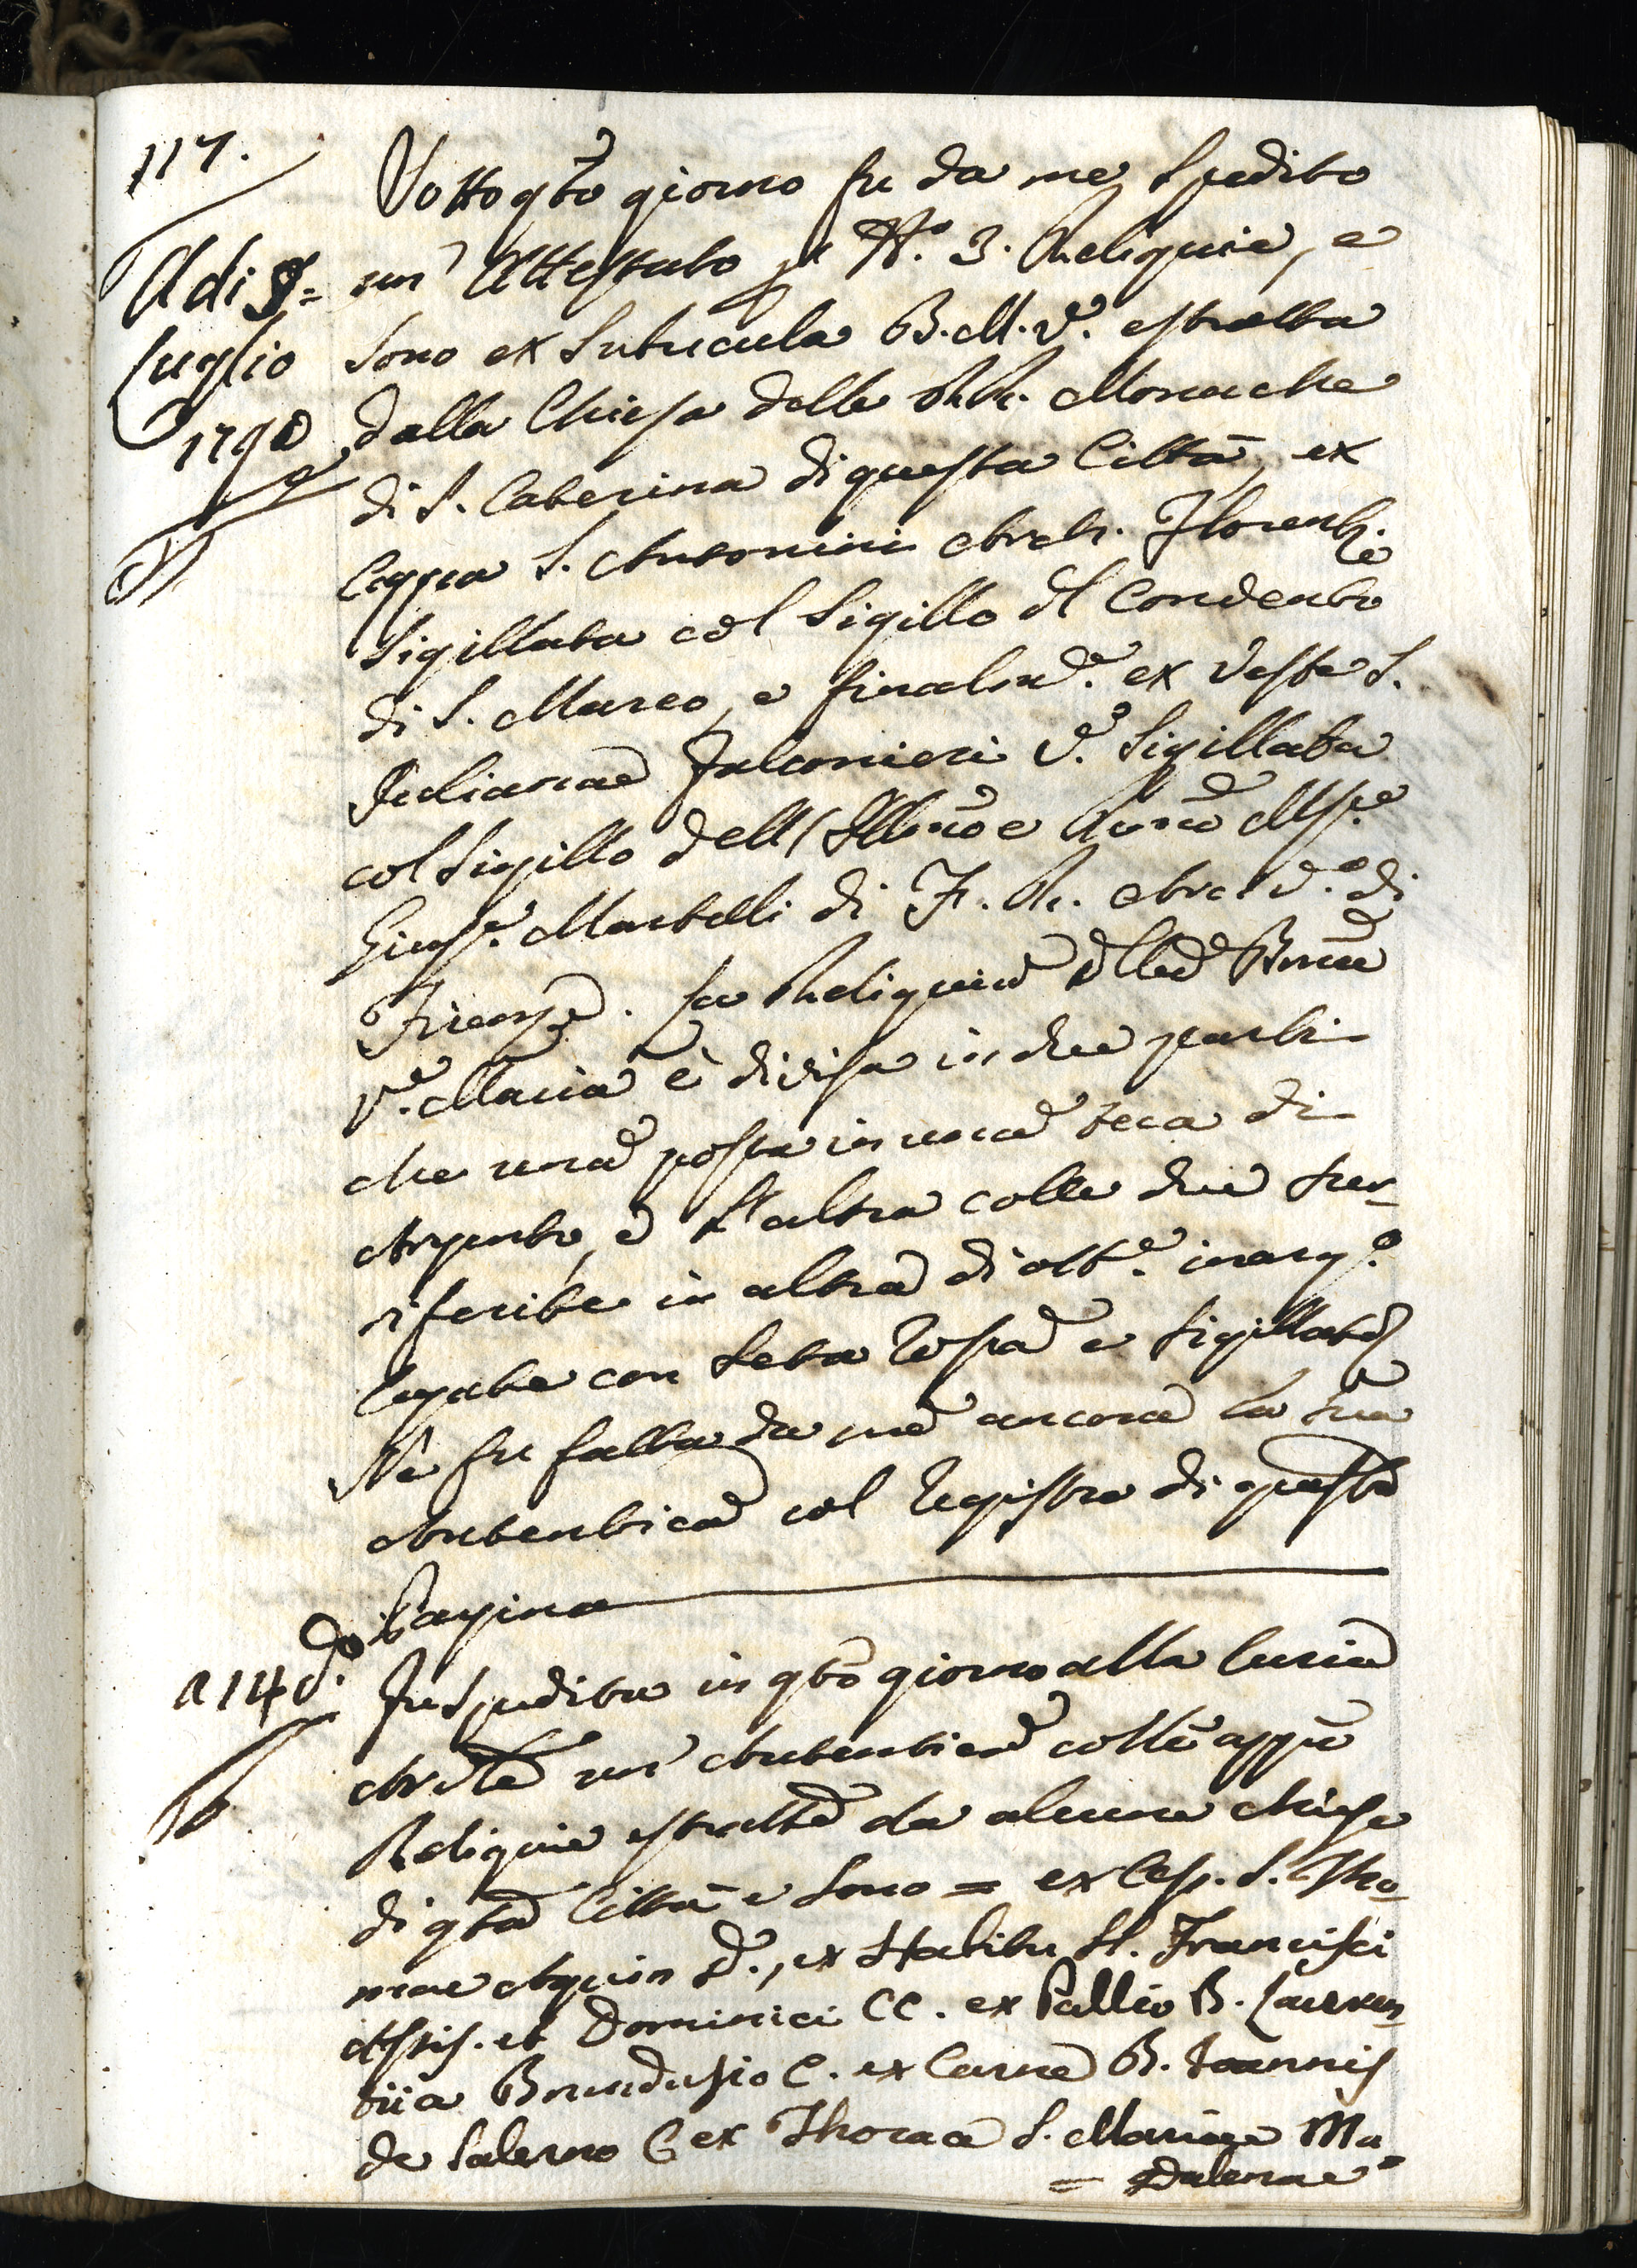 117.
Adi 9=
Luglio
1790
Sotto qto giorno fu da me spedito
un' Attestato p N.º 3. Reliquie, e
sono ex Subucula B.M.V.e estratta
dalla Chiesa delle RR. Monache
di S. Caterina di questa Città, ex
Cappa S. Antonini Arch. Florent.e
Sigillata col Sigillo dl Convento
di S. Marco, e finalm.e ex Veste S.
Julianae Falconieri V.e Sigillata
col Sigillo dell' Illmo e Rmo Ms.re
Gius.e Martelli di F. R. Arciv.o di
Firenze. La Reliquia dlla Bma
V.e Maria è divisa in due parti
che una posta in una teca di
Argento, e l'altra colle due sur-
riferite in altra di ott.e inarg.o
legate con seta rossa e sigillate
Ne fu fatta da me ancora la sua
Autentica col registro di questa
Pagina
a 14 do.
Fu spedita in qto giorno alla Curia
Arcile un' Autentica colle appie
Reliquie estratte da alcune chiese
di qta Città e sono = ex Cap. S. Tho-
mae Aquin D., ex Habitu SS. Francisci
Assis. et Dominici CC. ex Pallio B. Lauren-
tii a Brundusio C. ex Carne B. Ioannis
de Salerno C ex Thorace S. Mariae Ma=
= Dalenae